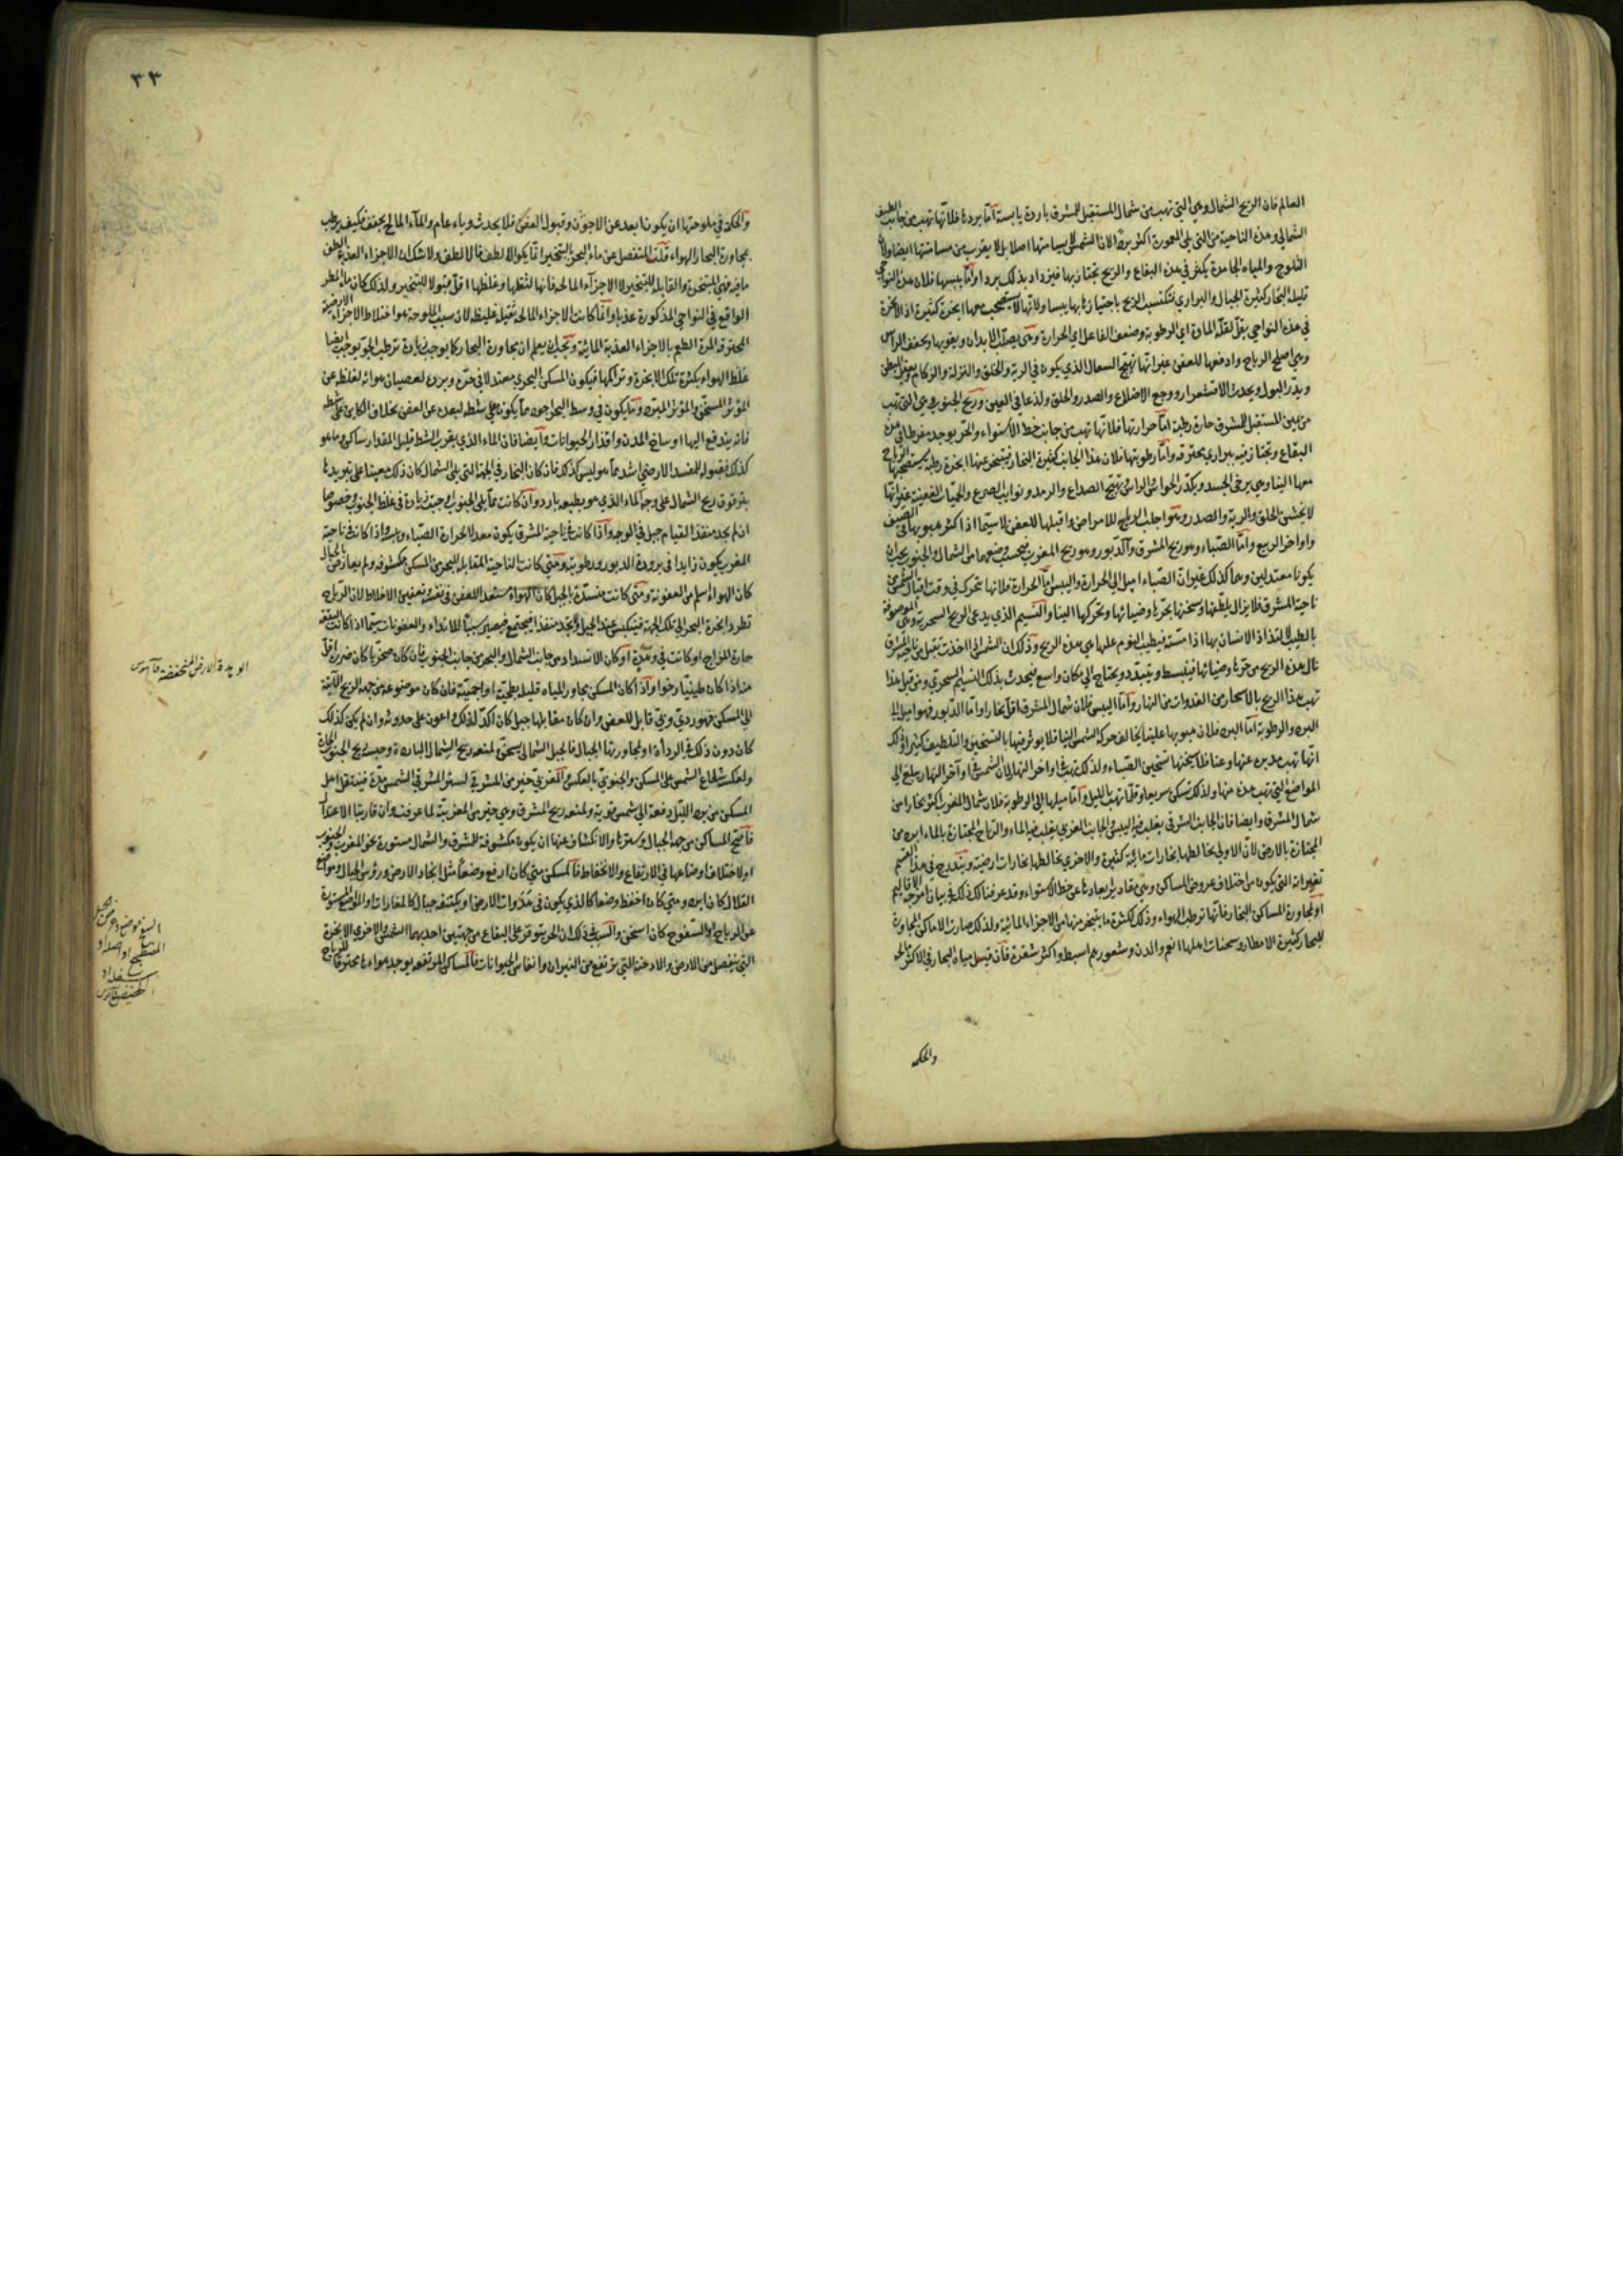 العالم فان الريح الشمال وهى التى تهب من شمال المستقبل للمشرق باردة يابسة اما بردها فلانها تهب من جانب القطب
الشمالى وهذه الناحية من التى على المعمورة اكثر بردا لان الشمس لا يسامتها اصلا بل لا يقرب من مسامتتها ايضا ولان
الثلوج والمياه الجامدة يكثر فى هذه البقاع والريح تجتاز بها فيزداد بذلك بردا واما يبسها فلان هذه النواحى
قليلة البحار كثيرة الجبال والبرارى فتكتسب الريح باجتيازها بها يبسا ولانها لا تستصحب معها ابخرة كثيرة اذ الابخرة
فى هذه النواحى يقل لقلة المادة اى الرطوبة وضعف الفاعل اى الحرارة وهى يصلب الابدان ويقويها ويجفف الرأس
وهى اصلح الرياح وادفعها للعفن غير انها تهيج السعال الذى يكون فى الرية والحلق والنزلة والزكام ويعقل البطن
ويدر البول ويحدث الاقشعرار ووجع الاضلاع والصدر والحلق ولذعا فى العين وريح الجنوب وهى التى تهب
من يمين المستقبل للمشرق حارة رطبة اما حرارتها فلانها تهب من جانب خط الاستواء والحر يوجد مفرطا فى هذه
البقاع وتجتاز فيه ببرارى محترقة واما رطوبتها فلان هذا الجانب كثيرة البحار فيتبخر عنها ابخرة رطبة يستصحبها الرياح
معها الينا وهى يرخى الجسد ويكدر الحواس والراس يهيج الصداع والرمد ونوايب الصرع والحميات العفنية غير انها
لا يخشن الحلق والرية والصدر وهو اجلب الرياح للامراض واقبلها للعفن لا سيما اذا اكثر هبوبها فى الصيف
واواخر الربيع واما الصباء وهو ريح المشرق والدبور وهو ريح المغرب فبحسب وضعهما من الشمال والجنوب يجب ان
يكونا معتدلين وهما كذلك غير ان الصباء اميل الى الحرارة واليبس اما الحرارة فلانها تتحرك فى وقت اقبال الشمس من
ناحية المشرق فلا يزال يلطفها وسخنها بحرها وضيائها وتحركها الينا والنسيم الذى يدعى الريح السحرية وهى الموصوفة
بالطيب لالتذاذ الانسان بها اذا مسته فيطيب النوم عليها هى هذه الريح وذلك ان الشمس اذا اخذت تقبل من ناحية المشرق
نال هذه الريح من حرها وضيائها فينبسط ويتبدد ويحتاج الى مكان واسع فيحدث بذلك النسيم السحرى ومن قبل هذا
تهب هذا الريح بالاسحار من الغدوات من النهار واما اليبس فلان شمال المشرق اقل بخارا واما الدبور فهو اميل الى
البرد والرطوبة اما البرد فلان هبوبها علينا يخالف حركة الشمس الينا فلا يوثر فيها بالتسخين والتلطيف كثيرا وذلك
انها تهب مدبرة عنها وعنا فلا يسخنها تسخين الصباء ولذلك تهب فى اواخر النهار لان الشمس فى اواخر النهار يبلغ الى
المواضع التى تهب هذه منها ولذلك تسكن سريعا وقلما تهب بالليل واما ميلها الى الرطوبة فلان شمال المغرب اكثر بخارا من
شمال المشرق وايضا فان الجانب الشرقى يغلب فيه اليبس والجانب الغربى يغلب فيه الماء والرياح المجتازة بالماء ابرد من
المجتازة بالارض لان الاولى يخالطها بخارات مائية كثيرة والاخرى يخالطها بخارات ارضية ويندرج فى هذا القسم
تغيراته التى يكون من اختلاف عروض المساكن وهى مقادير ابعادها عن خط الاستواء وقد عرفنا كل ذلك فى بيان امزجة الاقاليم
او لمجاورة المساكن البحار فانها ترطب الهواء وذلك لكثرة ما يتبخر منها من الاجزاء المائية ولذلك صارت الاماكن المجاورة
للبحار كثيرة الامطار وسحنات اهلها انعم والدن وشعورهم اسبط واكثر شقرة فان قيل مياه البحار فى الاكثر مالحة
والحكمة
٣٣
والحكمة فى ملوحتها ان يكون ابعد عن الاجون وقبول العفن فلا يحدث وباء عام والماء المالح يجفف فكيف يرطب
مجاورة البحار الهواء قلت المنفصل عن ماء البحر بالتبخير انما يكون الالطف فالالطف ولا شك ان الاجزاء العذبة الطف
ما فيه فهى المتبخرة والقابلة للتبخير لا الاجزاء المالحة فانها لثقلها وغلظها اقل قبولا للتبخير ولذلك كان ماء المطر
الواقع فى النواحى المذكورة عذبا وانما كانت الاجزاء المالحة ثقيلة غليظة لان سبب الملوحة هو اختلاط الاجزاء الارضية
المحترقة المرة الطعم بالاجزاء العذبة المائية ويجب ان يعلم ان مجاورة البحار كما يوجب زيادة ترطيب الجو يوجب ايضا
غلظ الهواء بكثرة تلك الابخرة وتراكمها فيكون المسكن البحرى معتدلا فى حره وبرده لعصيان هوائه لغلظه عن
المؤثر المسخن والمؤثر المبرد وما يكون فى وسط البحر اجود مما يكون على شطه لبعده عن العفن بخلاف الكاين على شطه
فانه يندفع اليها اوساخ المدن واقذار الحيوانات وايضا فان الماء الذى بقرب الشط قليل المقدار ساكن وما هو
كذلك فقبوله للمفسد الارضى اشد مما هو ليس كذلك فان كان البحار فى الجهة التى يلى الشمال كان ذلك معينا على تبريدها
بترقرق ريح الشمال على وجه الماء الذى هو بطبعه بارد وان كانت مما يلى الجنوب اوجبت زيادة فى غلظ الجنوب وخصوصا
اذا لم يجد منفذا لقيام جبل فى الوجه واذا كانت فى ناحية المشرق يكون معدلا لحرارة الصباء ويبسه واذا كانت فى ناحية
المغرب يكون زايدا فى برودة الدبور ورطوبته ومتى كانت الناحية المقابلة للبحر من المسكن مكشوفة ولم يعارض بالجبال
كان الهواء اسلم من العفونة ومتى كانت منسدة بالجبل كان الهواء مستعدا للعفن فى نفسه وتعفين الاخلاط لان الرياح
تطرد ابخرة البحر الى تلك الجهة فينكبس عند الجبل ولا يجد منفذا فيجتمع فيصير سببا للانداء والعفونات سيما اذا كانت البقعة
حارة المزاج او كانت فى وهدة او كان الانسداد من جانب الشمال والبحر من جانب الجنوب فان كان صخريا كان ضرره اقل
منه اذا كان طينيا رخوا واذا كان المسكن يجاور المياه قليلة بطحية او اجمية فان كان موضوعة من جهة الريح الآتية
الى المسكن فهو ردىّ وبىّ قابل للعفن وان كان مقابلها جبل كان اكد لذلك واعون على حدوثه وان لم يكن كذلك
كان دون ذلك فى الرداءة او لمجاورتها الجبال فالجبل الشمالى يسخن لمنعه ريح الشمال الباردة وحبسه ريح الجنوب الحارة
ولعكسه شعاع الشمس على المسكن والجنوبى بالعكس والمغربى خير من المشرقى لستر المشرقى الشمس مدة فينتقل اهل
المسكن من برد الليل دفعة الى شمس قوية ولمنعه ريح المشرق وهى خير من المغربية لما عرفت وان قاربتا الاعتدال
فاصح المساكن من جهة الجبال وسترها والانكشاف عنها ان يكون مكشوفة للمشرق والشمال مستورة نحو المغرب والجنوب
او لاختلاف اوضاعها فى الارتفاع والانخفاظ فالمسكن متى كان ارفع وضعا مثل انجاد الارض ورؤس الجبال ومواضع
القلال كان ابرد ومتى كان اخفض وضعا كالذى يكون فى هدوات الارض او يكتنفه جبال كالمغارات والمواضع المستورة
عن الرياح او السفوح كان اسخن والسبب فى ذلك ان الحر يتوفر على البقاع من جهتين احديهما الشمس والاخرى الابخرة
التى ينفصل من الارض والادخنة التى يرتفع من النيران وانفاس الحيوانات فالمساكن المرتفعة يوجد هواءها مخترقا للرياح
الوهدة الارض المنخفضة قاموس
السفح عرض الجبل
المضطجع او اصله او
اسفله او
الحضيض قاموس